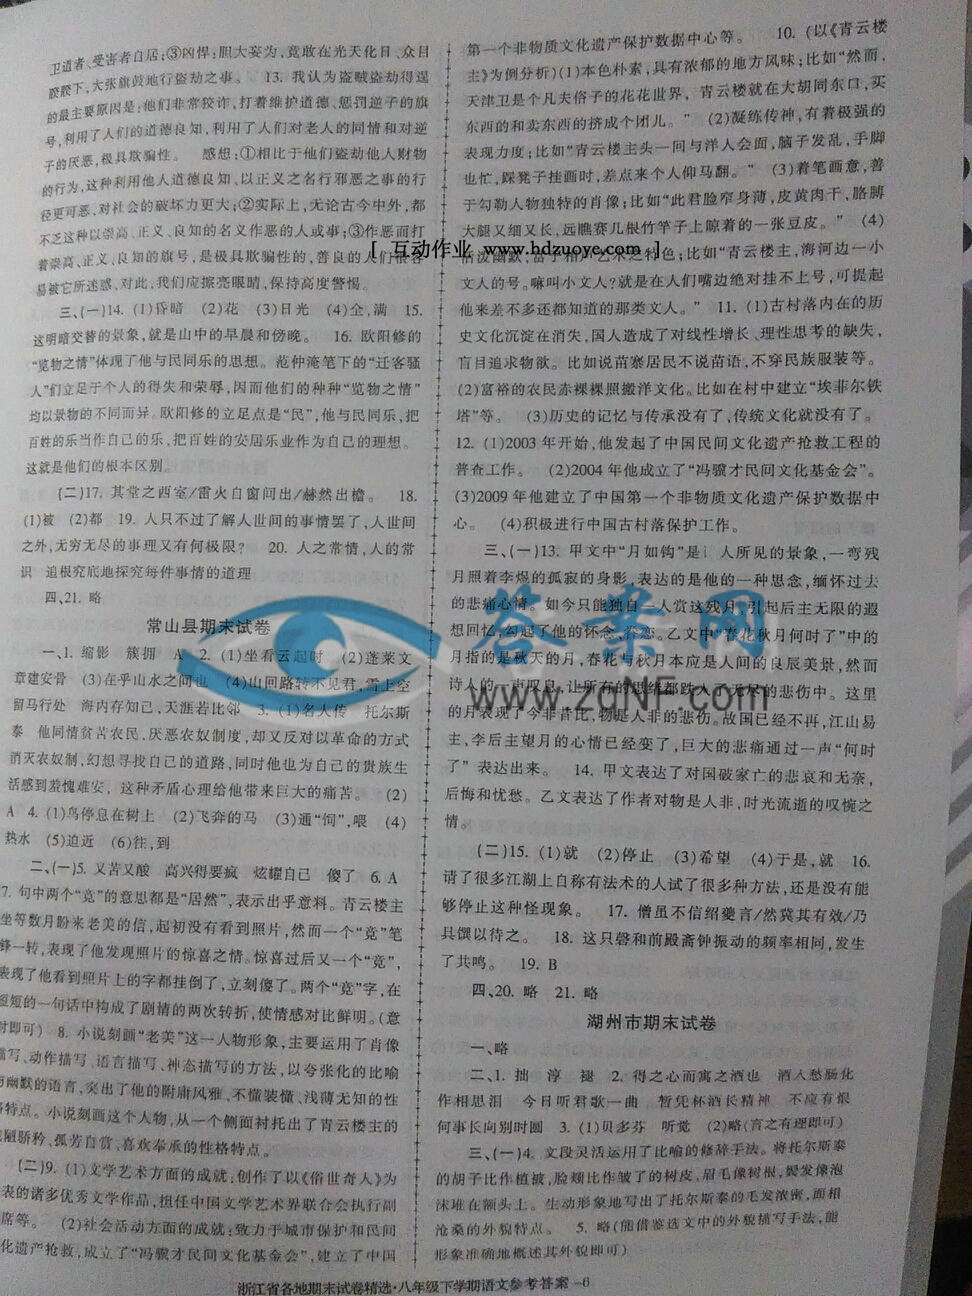 卫道者、受害者自居;③凶悍:胆大妄为,竟敢在光天化日、众目
睽睽下,大张旗鼓地行盗劫之事。 13. 我认为盗贼盗劫得逞
的最主要原因是:他们非常狡诈,打着维护道德、惩罚逆子的旗
号,利用了人们的道德良知,利用了人们对老人的同情和对逆
子的厌恶,极具欺骗性。 感想:①相比于他们盗劫他人财物
的行为,这种利用他人道德良知、以正义之名行邪恶之事的行
径更可恶,对社会的破坏力更大;②实际上,无论古今中外,都
不乏这种以崇高、正义、良知的名义作恶的人或事;③作恶而打
着崇高、正义、良知的旗号,是极具欺骗性的,善良的人们很容
易被它所迷惑,对此,我们应擦亮眼睛,保持高度警惕。
三、(一)14. (1)昏暗 (2)花 (3)日光 (4)全,满 15.
这明暗交替的景象,就是山中的早晨和傍晚。 16. 欧阳修的
“览物之情”体现了他与民同乐的思想。范仲淹笔下的“迁客骚
人”们立足于个人的得失和荣辱,因而他们的种种“览物之情”
均以景物的不同而异。欧阳修的立足点是“民”,他与民同乐,把
百姓的乐当作自己的乐,把百姓的安居乐业作为自己的理想。
这就是他们的根本区别。
(二)17. 其堂之西室/雷火自窗间出/赫然出檐。 18.
(1)被 (2)都 19. 人只不过了解人世间的事情罢了,人世间
之外,无穷无尽的事理又有何极限? 20. 人之常情,人的常
识 追根究底地探究每件事情的道理
四、21. 略
常山县期末试卷
一、1. 缩影 簇拥 A 2. (1)坐看云起时 (2)蓬莱文
章建安骨 (3)在乎山水之间也 (4)山回路转不见君,雪上空
留马行处 海内存知己,天涯若比邻 3. (1)名人传 托尔斯
泰 他同情贫苦农民,厌恶农奴制度,却又反对以革命的方式
消灭农奴制,幻想寻找自己的道路,同时他也为自己的贵族生
活感到羞愧难安, 这种矛盾心理给他带来巨大的痛苦。 (2)
A 4. (1)鸟停息在树上 (2)飞奔的马 (3)通“饲”,喂 (4)
热水 (5)迫近 (6)往,到
二、(一)5. 又苦又酸 高兴得要疯 炫耀自己 傻了 6. A
7. 句中两个“竟”的意思都是“居然”,表示出乎意料。青云楼主
坐等数月盼来老美的信,起初没有看到照片,然而一个“竟”笔
锋一转,表现了他发现照片的惊喜之情。惊喜过后又一个“竟”,
表现了他看到照片上的字都挂倒了,立刻傻了。两个“竟”字,在
短短的一句话中构成了剧情的两次转折,使情感对比鲜明。(意
对即可) 8. 小说刻画“老美”这一人物形象,主要运用了肖像
描写、动作描写、语言描写、神态描写的方法,以夸张化的比喻
与幽默的语言,突出了他的附庸风雅、不懂装懂、浅薄无知的性
格特点。小说刻画这个人物,从一个侧面衬托出了青云楼主的
陋骄矜、孤芳自赏、喜欢奉承的性格特点。
(二)9. (1)文学艺术方面的成就:创作了以《俗世奇人》为
表的诸多优秀文学作品,担任中国文学艺术界联合会执行副
席等。 (2)社会活动方面的成就:致力于城市保护和民间
化遗产抢救,成立了“冯骥才民间文化基金会”,建立了中国
第一个非物质文化遗产保护数据中心等。 10. (以《青云楼
主》为例分析)(1)本色朴素,具有浓郁的地方风味;比如“然而
天津卫是个凡夫俗子的花花世界, 青云楼就在大胡同东口,买
东西的和卖东西的挤成个团儿。” (2)凝练传神,有着极强的
表现力度;比如“青云楼主头一回与洋人会面,脑子发乱,手脚
也忙,踩凳子挂画时,差点来个人仰马翻。” (3)着笔画意,善
于勾勒人物独特的肖像;比如“此君脸窄身薄,皮黄肉干,胳膊
大腿又细又长,远瞧赛几根竹竿子上晾着的一张豆皮。” (4)
活泼幽默,富于相声艺术之特色;比如“青云楼主,海河边一小
文人的号。嘛叫小文人?就是在人们嘴边绝对挂不上号,可提起
他来差不多还都知道的那类文人。” 11. (1)古村落内在的历
史文化沉淀在消失,国人造成了对线性增长、理性思考的缺失,
盲目追求物欲。比如说苗寨居民不说苗语,不穿民族服装等。
(2)富裕的农民赤裸裸照搬洋文化。比如在村中建立“埃菲尔铁
塔”等。 (3)历史的记忆与传承没有了,传统文化就没有了。
12. (1)2003年开始,他发起了中国民间文化遗产抢救工程的
普查工作。 (2)2004年他成立了“冯骥才民间文化基金会”。
(3)2009年他建立了中国第一个非物质文化遗产保护数据中
心。 (4)积极进行中国古村落保护工作。
三、(一)13. 甲文中“月如钩”是 人所见的景象,一弯残
月照着李煜的孤寂的身影,表达的是他的一种思念,缅怀过去
的悲痛心情。如今只能独自一人赏这残月,引起后主无限的遐
想回忆,勾起了他的怀念、眷恋。乙文中“春花秋月何时了”中的
月指的是秋天的月,春花与秋月本应是人间的良辰美景,然而
诗人的一声叹息,让所有的思绪都跌入了无尽的悲伤中。这里
的月表现了今非昔比,物是人非的悲伤。故国已经不再,江山易
主,李后主望月的心情已经变了,巨大的悲痛通过一声“何时
了” 表达出来。 14. 甲文表达了对国破家亡的悲哀和无奈,
后悔和忧愁。乙文表达了作者对物是人非,时光流逝的叹惋之
情。
(二)15. (1)就 (2)停止 (3)希望 (4)于是,就 16.
请了很多江湖上自称有法术的人试了很多种方法,还是没有能
够停止这种怪现象。 17. 僧虽不信绍夔言/然冀其有效/乃
具馔以待之。 18. 这只磬和前殿斋钟振动的频率相同,发生
了共鸣。 19. B
四、20. 略 21. 略
湖州市期末试卷
一、略
二、1. 拙 淳 褪 2. 得之心而寓之酒也 酒入愁肠化
作相思泪 今日听君歌一曲 暂凭杯酒长精神 不应有恨
何事长向别时圆 3. (1)贝多芬 听觉 (2)略(言之有理即可)
三、(一)4. 文段灵活运用了比喻的修辞手法。将托尔斯泰
的胡子比作植被,脸颊比作皱了的树皮,眉毛像树根,鬓发像泡
沫堆在额头上。生动形象地写出了托尔斯泰的毛发浓密,面相
沧桑的外貌特点。 5. 略(能借鉴选文中的外貌描写手法,能
形象准确地概述其外貌即可)
浙江省各地期末试卷精选·八年级下学期语文参考答案—6
[ 互动作业 www.hdzuoye.com ]
答案网
www.zqNF.com